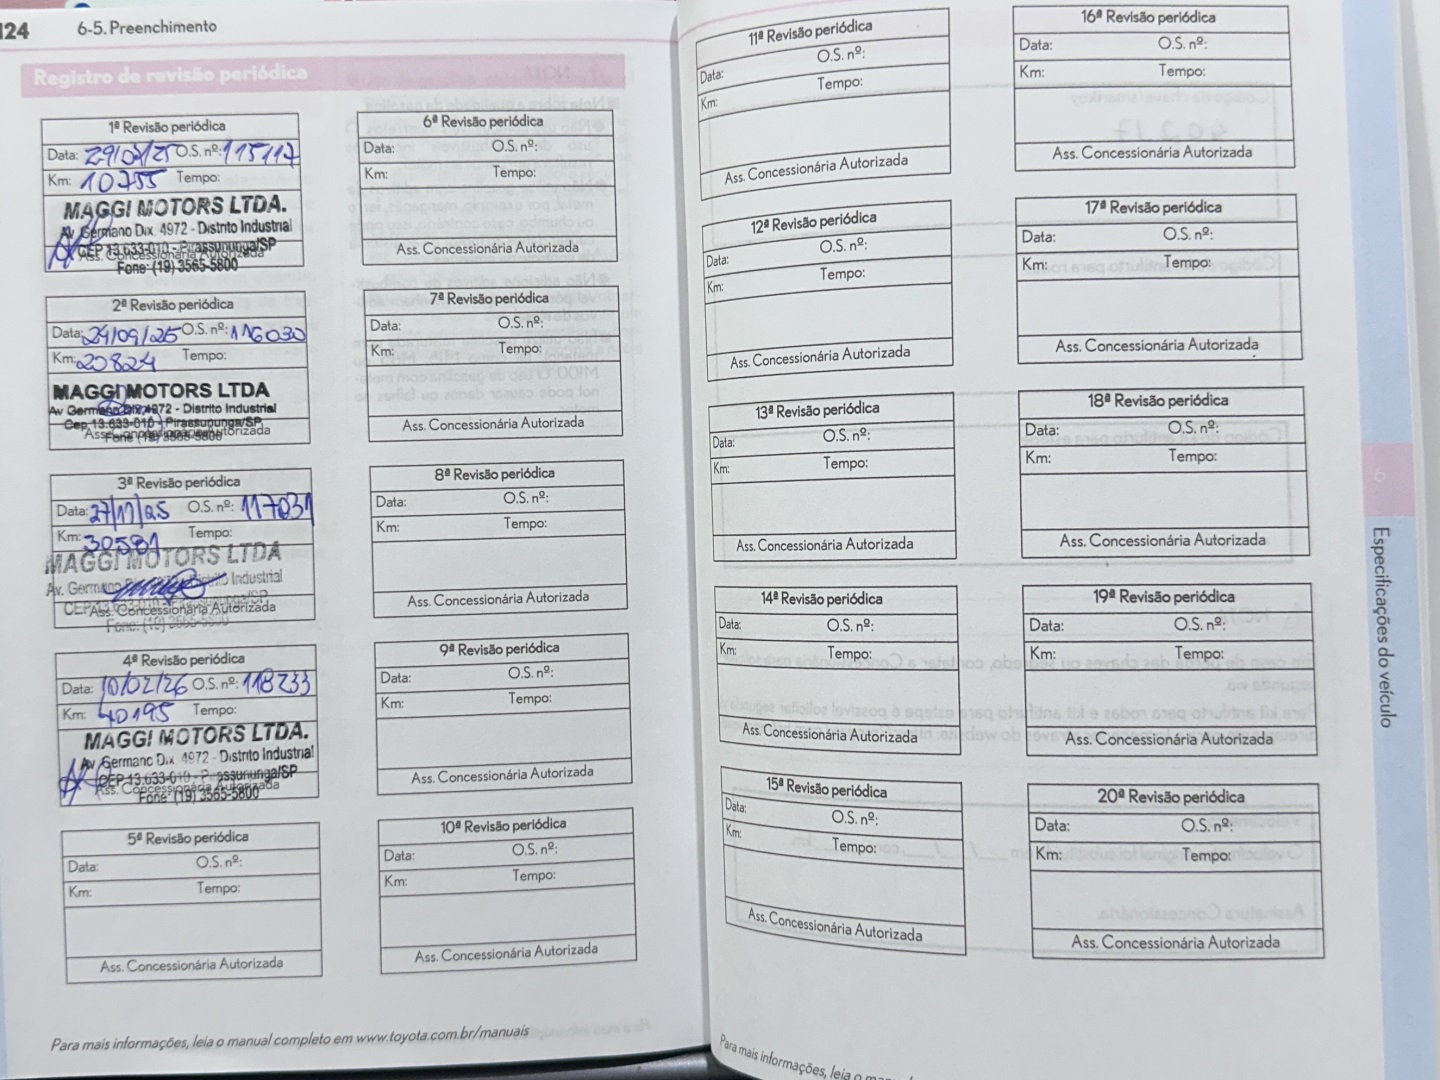 124 6-5. Preenchimento
Registro de revisão periódica
1ª Revisão periódica
Data: 29/05/25 O.S. nº: 115117
Km: 10755 Tempo:
MAGGI MOTORS LTDA.
Av Germano Dix. 4972 - Distrito Industrial
CEP 13.633-010 - Pirassununga/SP
Ass. Concessionária Autorizada
Fone: (19) 3565-5800
2ª Revisão periódica
Data: 24/09/25 O.S. nº: 116030
Km: 20824 Tempo:
MAGGI MOTORS LTDA
Av Germano Dix 4972 - Distrito Industrial
Cep 13.633-010 - Pirassununga/SP
Ass. Concessionária Autorizada
Fone (19) 3565-5800
3ª Revisão periódica
Data: 27/11/25 O.S. nº: 117031
Km: 30581 Tempo:
MAGGI MOTORS LTDA
Av. Germano Industrial
CEP
Ass. Concessionária Autorizada
Fone: (19) 3565-5800
4ª Revisão periódica
Data: 10/02/26 O.S. nº: 118233
Km: 40195 Tempo:
MAGGI MOTORS LTDA.
Av Germano Dix. 4972 - Distrito Industrial
CEP 13.633-010 - Pirassununga/SP
Ass. Concessionária Autorizada
Fone: (19) 3565-5800
5ª Revisão periódica
Data: O.S. nº:
Km: Tempo:
Ass. Concessionária Autorizada
6ª Revisão periódica
Data: O.S. nº:
Km: Tempo:
Ass. Concessionária Autorizada
7ª Revisão periódica
Data: O.S. nº:
Km: Tempo:
Ass. Concessionária Autorizada
8ª Revisão periódica
Data: O.S. nº:
Km: Tempo:
Ass. Concessionária Autorizada
9ª Revisão periódica
Data: O.S. nº:
Km: Tempo:
Ass. Concessionária Autorizada
10ª Revisão periódica
Data: O.S. nº:
Km: Tempo:
Ass. Concessionária Autorizada
Para mais informações, leia o manual completo em www.toyota.com.br/manuais
11ª Revisão periódica
Data: O.S. nº:
Km: Tempo:
Ass. Concessionária Autorizada
12ª Revisão periódica
Data: O.S. nº:
Km: Tempo:
Ass. Concessionária Autorizada
13ª Revisão periódica
Data: O.S. nº:
Km: Tempo:
Ass. Concessionária Autorizada
14ª Revisão periódica
Data: O.S. nº:
Km: Tempo:
Ass. Concessionária Autorizada
15ª Revisão periódica
Data: O.S. nº:
Km: Tempo:
Ass. Concessionária Autorizada
16ª Revisão periódica
Data: O.S. nº:
Km: Tempo:
Ass. Concessionária Autorizada
17ª Revisão periódica
Data: O.S. nº:
Km: Tempo:
Ass. Concessionária Autorizada
18ª Revisão periódica
Data: O.S. nº:
Km: Tempo:
Ass. Concessionária Autorizada
19ª Revisão periódica
Data: O.S. nº:
Km: Tempo:
Ass. Concessionária Autorizada
20ª Revisão periódica
Data: O.S. nº:
Km: Tempo:
Ass. Concessionária Autorizada
Para mais informações, leia o
6
Especificações do veículo